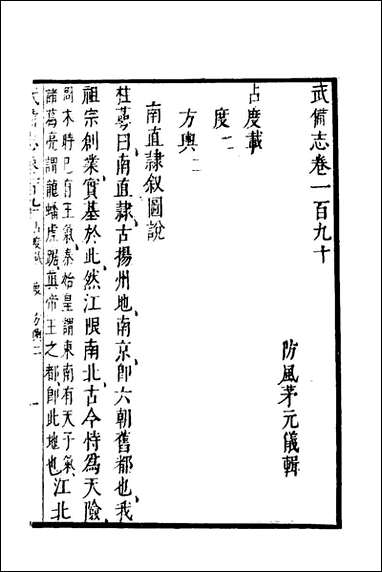 武備志卷一百九十
防風茅元儀輯
占度載
度二
方輿二
南直隸叙圖說
桂萼曰南直隸古揚州地南京即六朝舊都也我
祖宗創業實基於此然江限南北古今恃為天險
周末時已有王氣秦始皇謂東南有天子氣
諸葛亮謂龍蟠虎踞真帝王之都即此地也江北
武備志卷百九十 占度載 度 方輿二 一